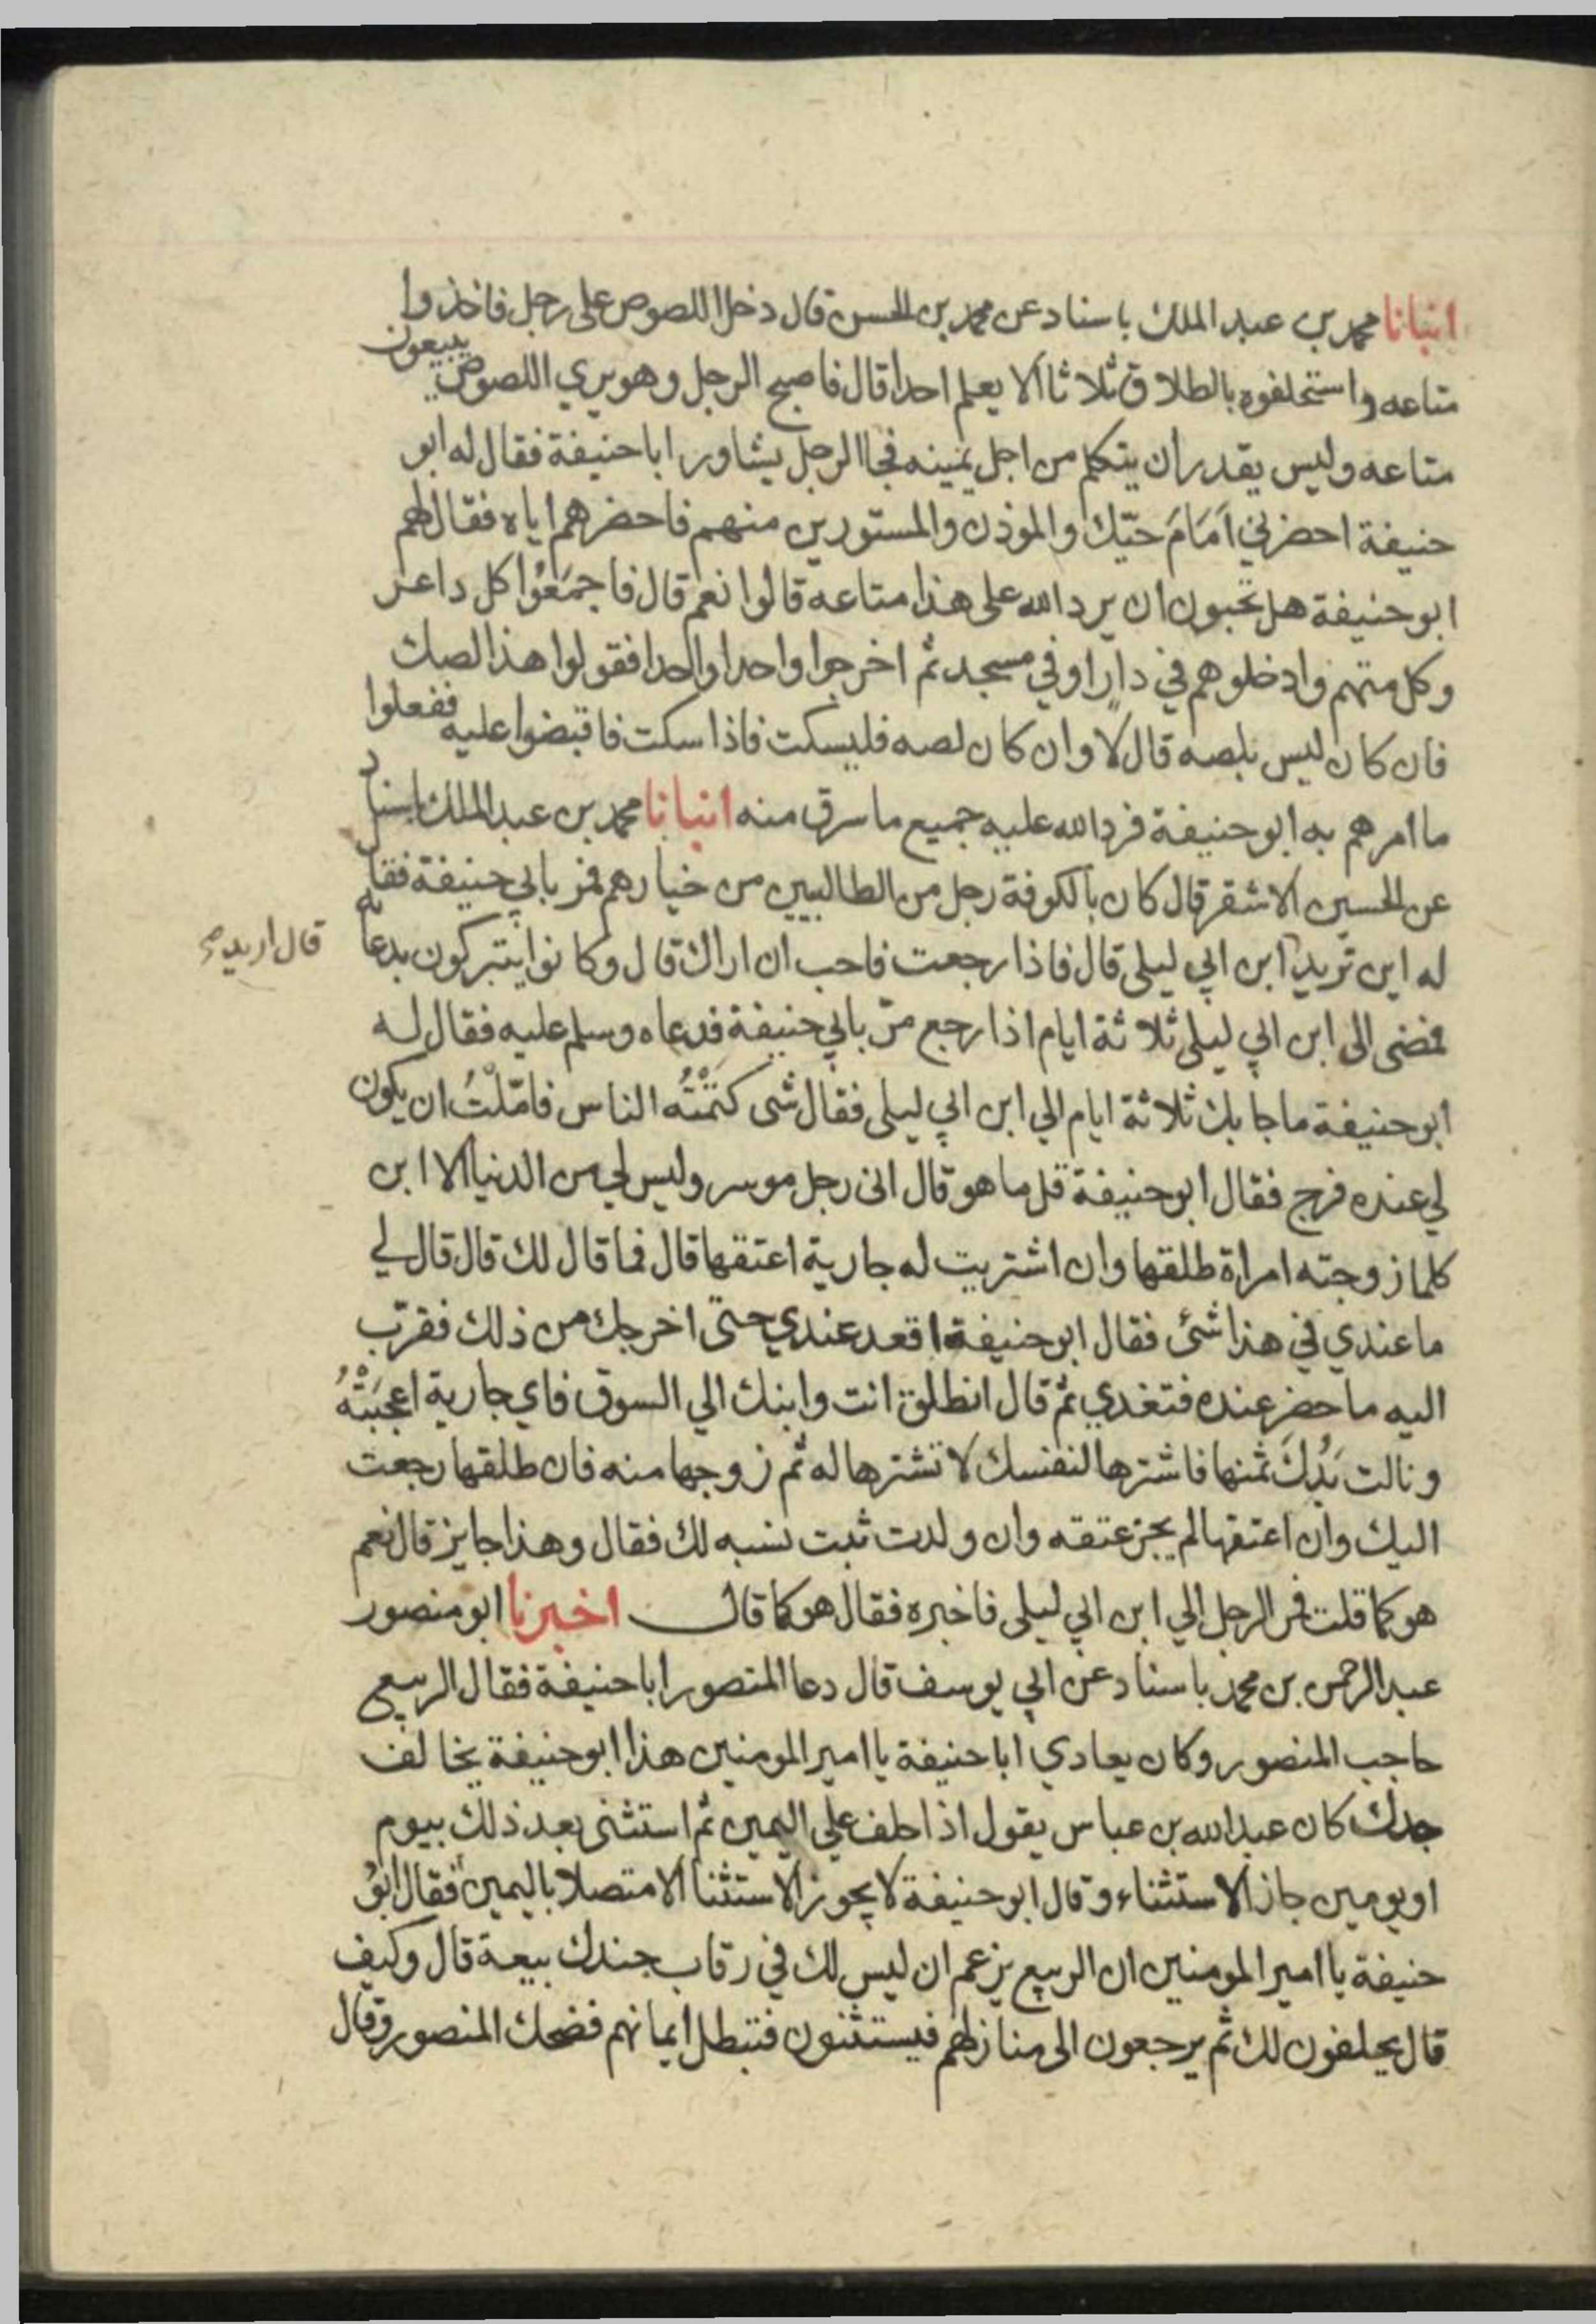 انبانا محمد بن عبد الملك باسناد عن محمد بن الحسن قال دخل اللصوص على رجل فاخذوا
متاعه واستحلفوه بالطلاق ثلاثا الا يعلم احدا قال فاصبح الرجل وهو يري اللصوص يبيعون
متاعه وليس يقدر ان يتكلم من اجل يمينه فجا الرجل يشاور ابا حنيفة فقال له ابو
حنيفة احضرني اَمَامَ حيّك والموذن والمستورين منهم فاحضرهم اياه فقال لهم
ابو حنيفة هل تحبون ان يرد الله على هذا متاعه قالوا نعم قال فاجمَعُوا كل داعر
وكل متهم وادخلوهم في دار او في مسجد ثم اخرجوا واحدا واحدا فقولوا هذا لصك
فان كان ليس بلصه قال لا وان كان لصه فليسكت فاذا سكت فاقبضوا عليه ففعلوا
ما امرهم به ابو حنيفة فرد الله عليه جميع ما سرق منه انبانا محمد بن عبد الملك باسناد
عن الحسين الاشقر قال كان بالكوفة رجل من الطالبيين من خيارهم فمر بابي حنيفة فقال
له اين تريد ابن ابي ليلى قال فاذا رجعت فاحب ان اراك قال وكانوا يتبركون بدعائه
قال اريد صح
فمضى الى ابن ابي ليلى ثلاثة ايام اذا رجع مرّ بابي حنيفة فدعاه وسلم عليه فقال له
ابو حنيفة ما جا بك ثلاثة ايام الي ابن ابي ليلى فقال شى كتمْتُه الناس فامّلْتُ ان يكون
لي عنده فرج فقال ابو حنيفة قل ما هو قال انى رجل موسر وليس لي من الدنيا الا ابن
كلما زوجته امراة طلقها وان اشتريت له جارية اعتقها قال فما قال لك قال قال لي
ما عندي في هذا شئ فقال ابو حنيفة اقعد عندي حتى اخرجك من ذلك فقرّب
اليه ما حضر عنده فتغدي ثم قال انطلق انت وابنك الي السوق فاي جارية اعجبَتْهُ
ونالت يَدُكَ ثمنها فاشترها لنفسك لا تشترها له ثم زوجها منه فان طلقها رجعت
اليك وان اعتقها لم يجز عتقه وان ولدت ثبت نسبه لك فقال وهذا جايز قال نعم
هو كما قلت فمر الرجل الي ابن ابي ليلى فاخبره فقال هو كما قال اخبرنا ابو منصور
عبد الرحمن بن محمد باسناد عن ابي يوسف قال دعا المنصور ابا حنيفة فقال الربيع
حاجب المنصور وكان يعادي ابا حنيفة يا امير المومنين هذا ابو حنيفة يخالف
جدك كان عبد الله بن عباس يقول اذا حلف علي اليمين ثم استثنى بعد ذلك بيوم
او يومين جاز الاستثناء وقال ابو حنيفة لا يجوز الاستثنا الا متصلا باليمين فقال ابوُ
حنيفة يا امير المومنين ان الربيع يزعم ان ليس لك في رقاب جندك بيعة قال وكيف
قال يحلفون لك ثم يرجعون الى منازلهم فيستثنون فتبطل ايمانهم فضحك المنصور وقال